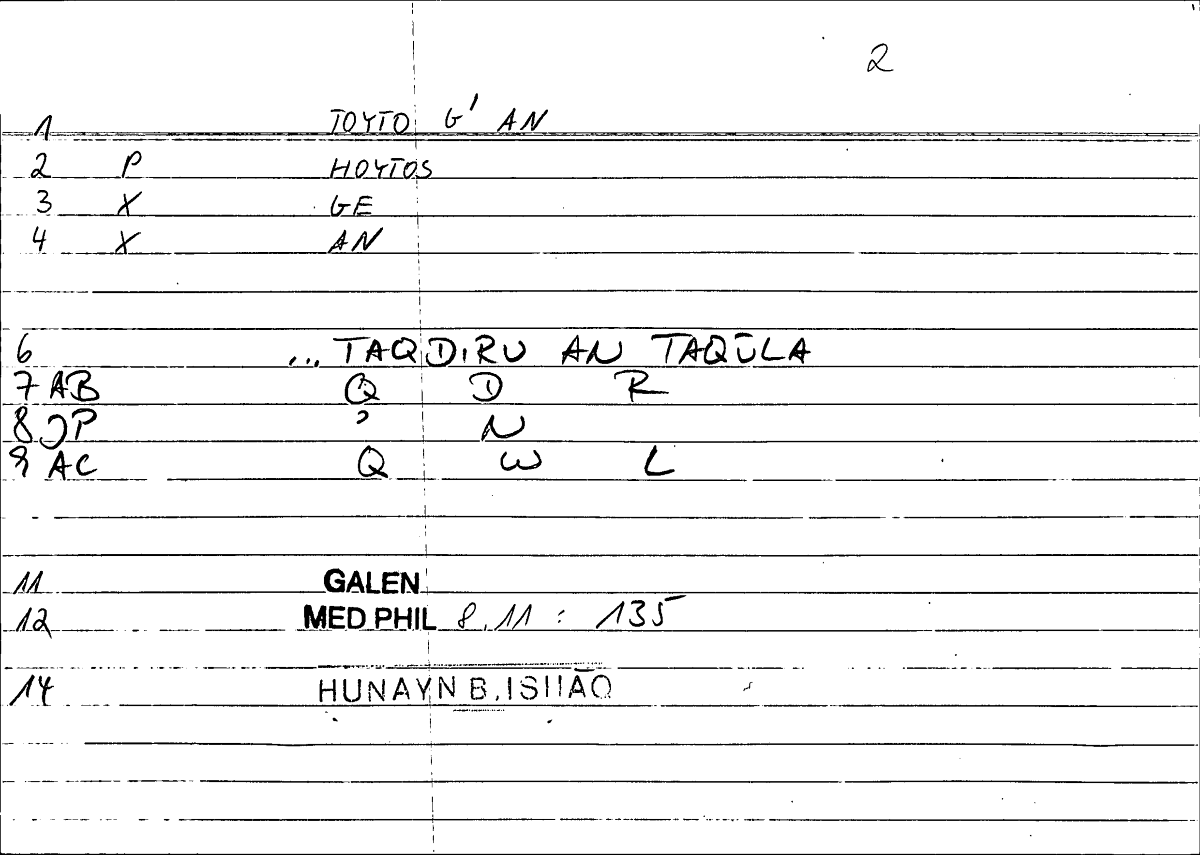 2
1 TOYTO G' AN
2 P HOYTOS
3 X GE
4 X AN
6 ... TAQDIRU AN TAQŪLA
7 AB Q D R
8 JP ' N
9 AC Q W L
11 GALEN
12 MED PHIL 8.11 : 135
14 HUNAYN B. ISḤĀQ